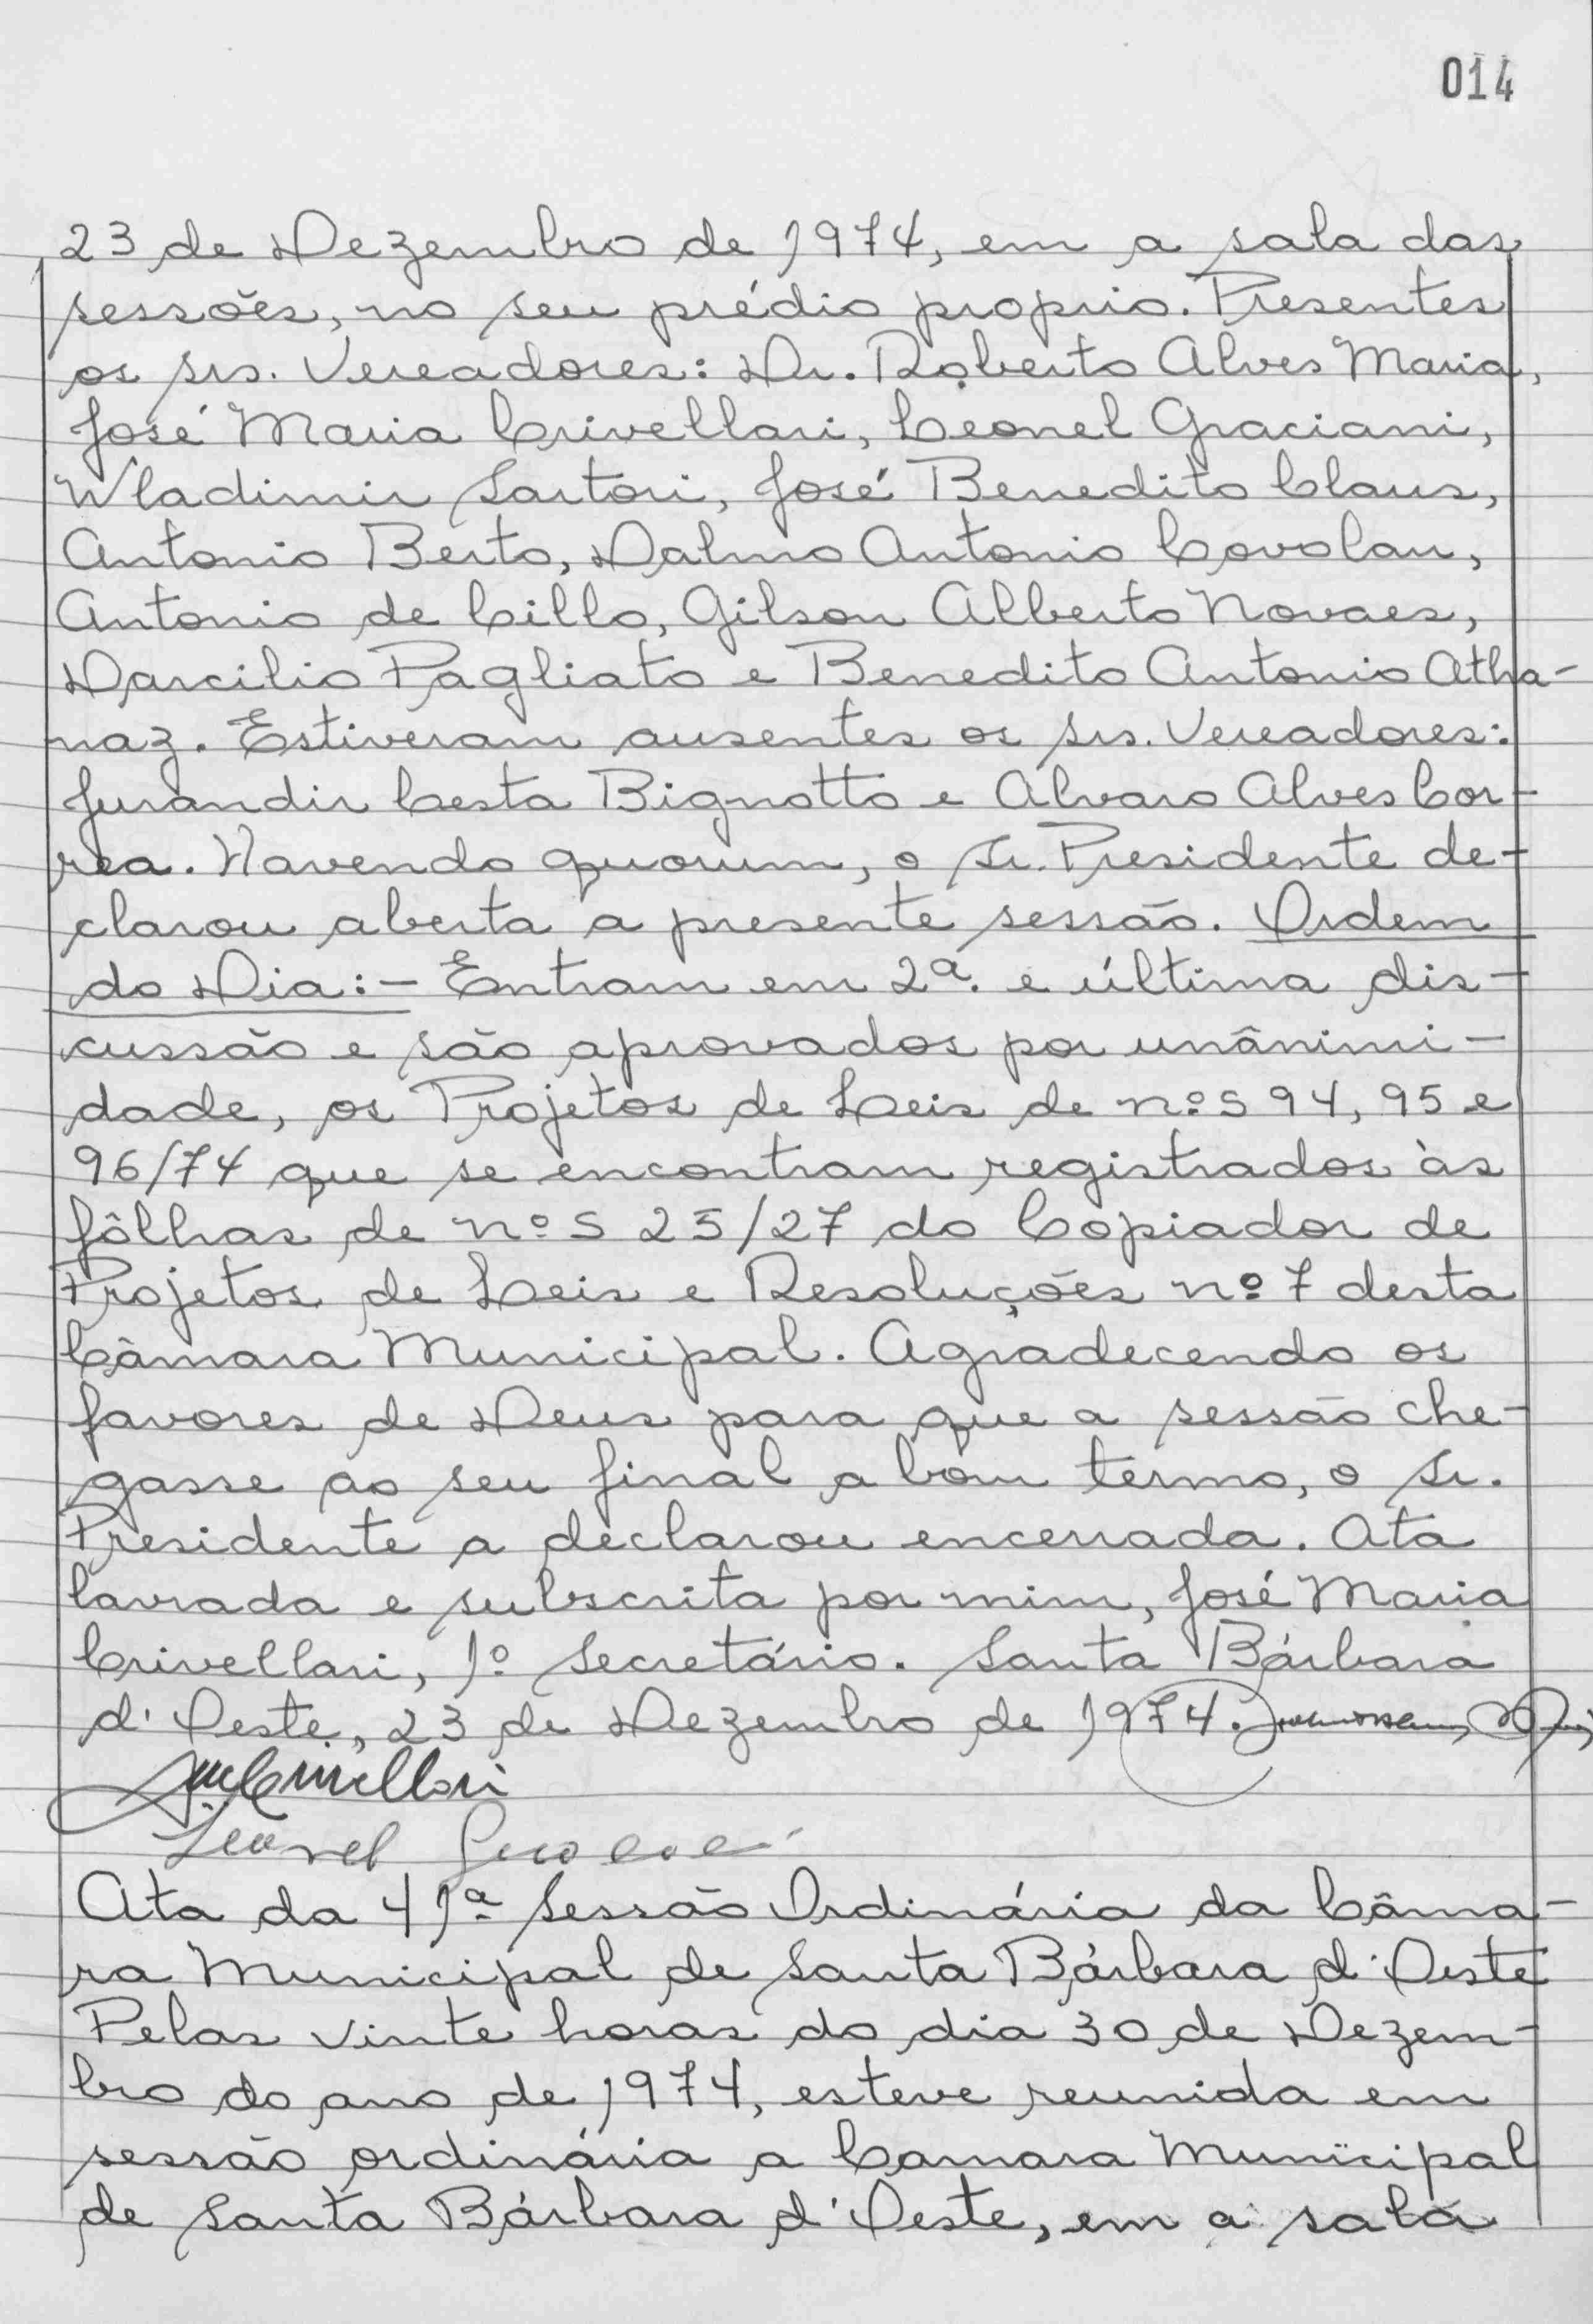 014
23 de Dezembro de 1974, em a sala das
sessões, no seu prédio proprio. Presentes
os srs. Vereadores: Dr. Roberto Alves Maria,
José Maria Crivellari, Leonel Graciani,
Wladimir Sartori, José Benedito Claus,
Antonio Berto, Dalmo Antonio Covolan,
Antonio de Cillo, Gilson Alberto Novaes,
Darcilio Pagliato e Benedito Antonio Atha-
naz. Estiveram ausentes os srs. Vereadores:
Jurandir Cesta Bignotto e Alvaro Alves Cor-
rea. Havendo quorum, o sr. Presidente de-
clarou aberta a presente sessão. Ordem
do Dia:- Entram em 2ª. e última dis-
cussão e são aprovados por unânimi-
dade, os Projetos de Leis de nºs 94, 95 e
96/74 que se encontram registrados às
fôlhas de nºs 25/27 do Copiador de
Projetos de Leis e Resoluções nº 7 desta
Câmara Municipal. Agradecendo os
favores de Deus para que a sessão che-
gasse ao seu final a bom termo, o sr.
Presidente a declarou encerrada. Ata
lavrada e subscrita por mim, José Maria
Crivellari, 1º Secretário. Santa Bárbara
d'Oeste, 23 de Dezembro de 1974.
JMCrivellari
Leonel
Ata da 41ª Sessão Ordinária da Câma-
ra Municipal de Santa Bárbara d'Oeste
Pelas vinte horas do dia 30 de Dezem-
bro do ano de 1974, esteve reunida em
sessão ordinária a Camara Municipal
de Santa Bárbara d'Oeste, em a sala